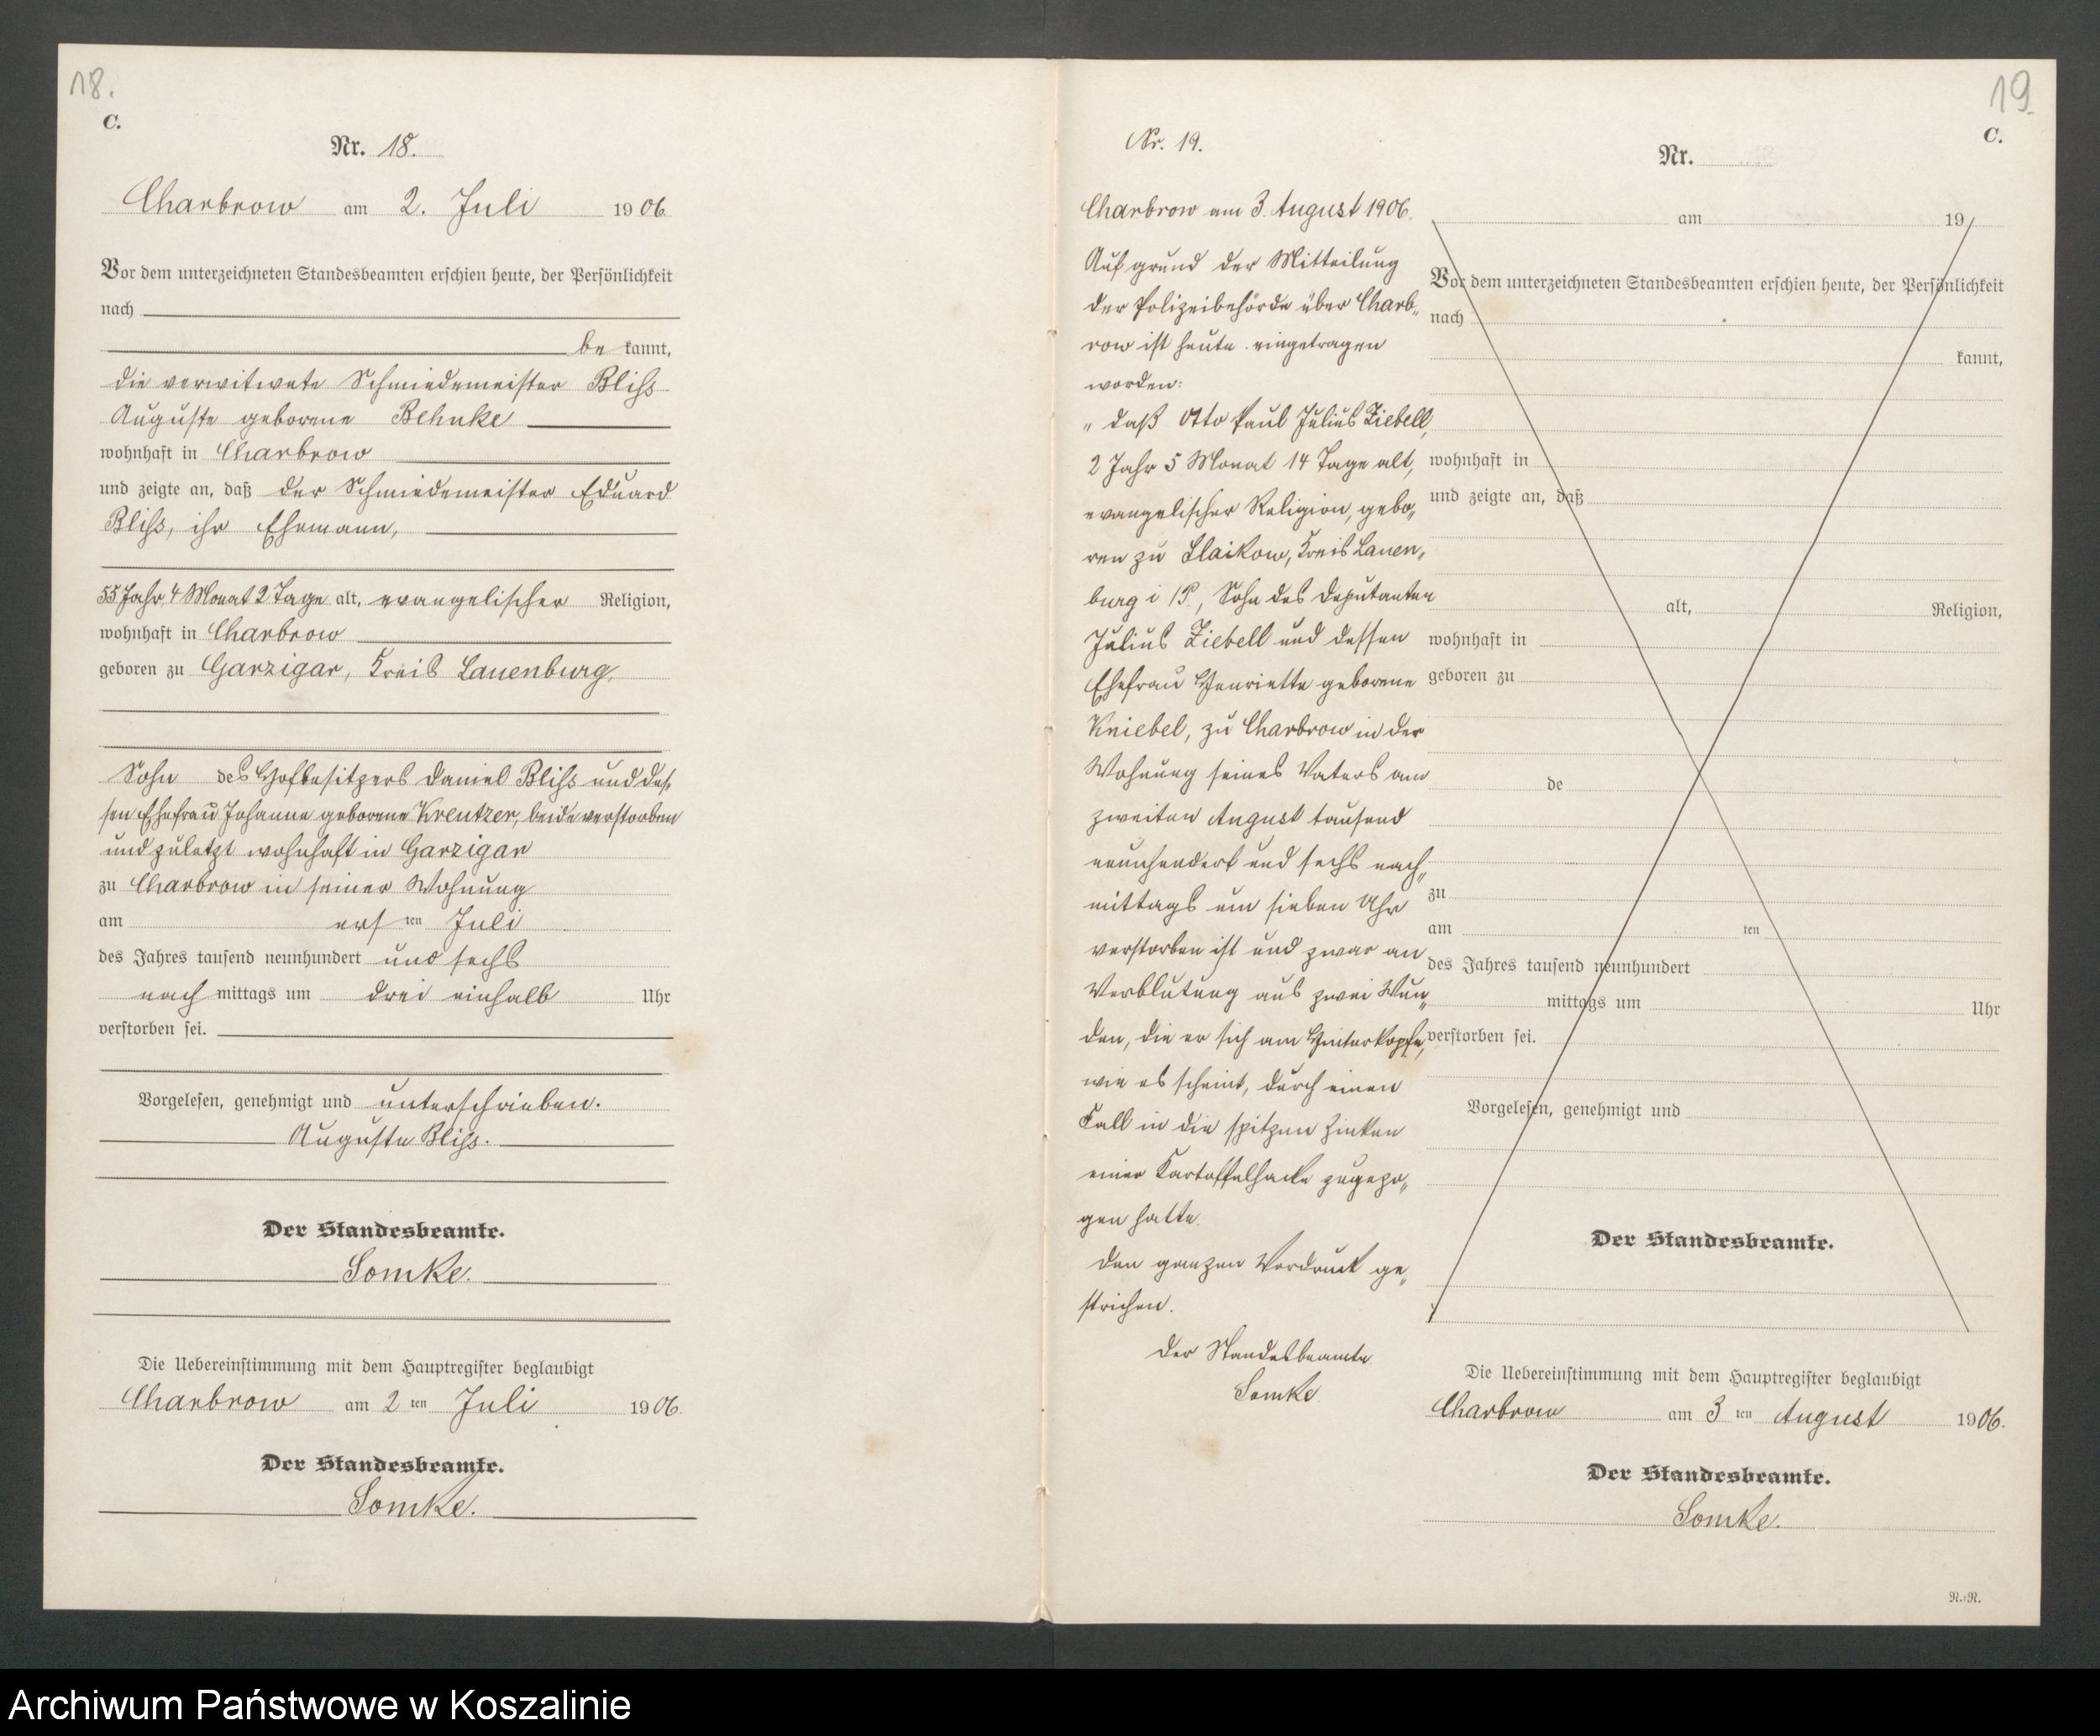 18.
C.
Nr. 18.
Charbrow am 2. Juli 1906
Vor dem unterzeichneten Standesbeamten erschien heute, der Persönlichkeit
nach
be kannt,
die verwitwete Schmiedemeister Bliss
Auguste geborene Behnke
wohnhaft in Charbrow
und zeigte an, daß der Schmiedemeister Eduard
Bliss, ihr Ehemann,
55 Jahr 4 Monat 2 Tage alt, evangelischer Religion,
wohnhaft in Charbrow
geboren zu Garzigar, Kreis Lauenburg,
Sohn des Hofbesitzers Daniel Bliss und des„
sen Ehefrau Johanna geborene Kreutzer, beide verstorben
und zuletzt wohnhaft in Garzigar
zu Charbrow in seiner Wohnung
am ersten Juli
des Jahres tausend neunhundert und sechs
nach mittags um drei einhalb Uhr
verstorben sei.
Vorgelesen, genehmigt und unterschrieben.
Auguste Bliss.
Der Standesbeamte.
Somke.
Die Uebereinstimmung mit dem Hauptregister beglaubigt
Charbrow am 2 ten Juli 1906.
Der Standesbeamte.
Somke.
19.
C.
Nr. 19.
Charbrow am 3. August 1906.
Auf grund der Mitteilung
der Polizeibehörde über Charb„
row ist heute eingetragen
worden:
„ daß Otto Paul Julius Ziebell,
2 Jahr 5 Monat 14 Tage alt,
evangelischer Religion, gebo„
ren zu Slaikow, Kreis Lauen„
burg i /P., Sohn des Deputanten
Julius Ziebell und dessen
Ehefrau Henriette geborene
Kniebel, zu Charbrow in der
Wohnung seines Vaters am
zweiten August tausend
neunhundert und sechs nach„
mittags um sieben Uhr
verstorben ist und zwar an
Verblutung aus zwei Wun„
den, die er sich am Hinterkopfe,
wie es scheint, durch einen
Fall in die spitzen Zinken
einer Kartoffelhacke zugezo„
gen hatte.
Den ganzen Vordruck ge„
strichen.
Der Standesbeamte
Somke.
Nr.
am 19
Vor dem unterzeichneten Standesbeamten erschien heute, der Persönlichkeit
nach
kannt,
wohnhaft in
und zeigte an, daß
alt, Religion,
wohnhaft in
geboren zu
de
zu
am ten
des Jahres tausend neunhundert
mittags um Uhr
verstorben sei.
Vorgelesen, genehmigt und
Der Standesbeamte.
Die Uebereinstimmung mit dem Hauptregister beglaubigt
Charbrow am 3 ten August 1906.
Der Standesbeamte.
Somke.
R.-R.
Archiwum Państwowe w Koszalinie